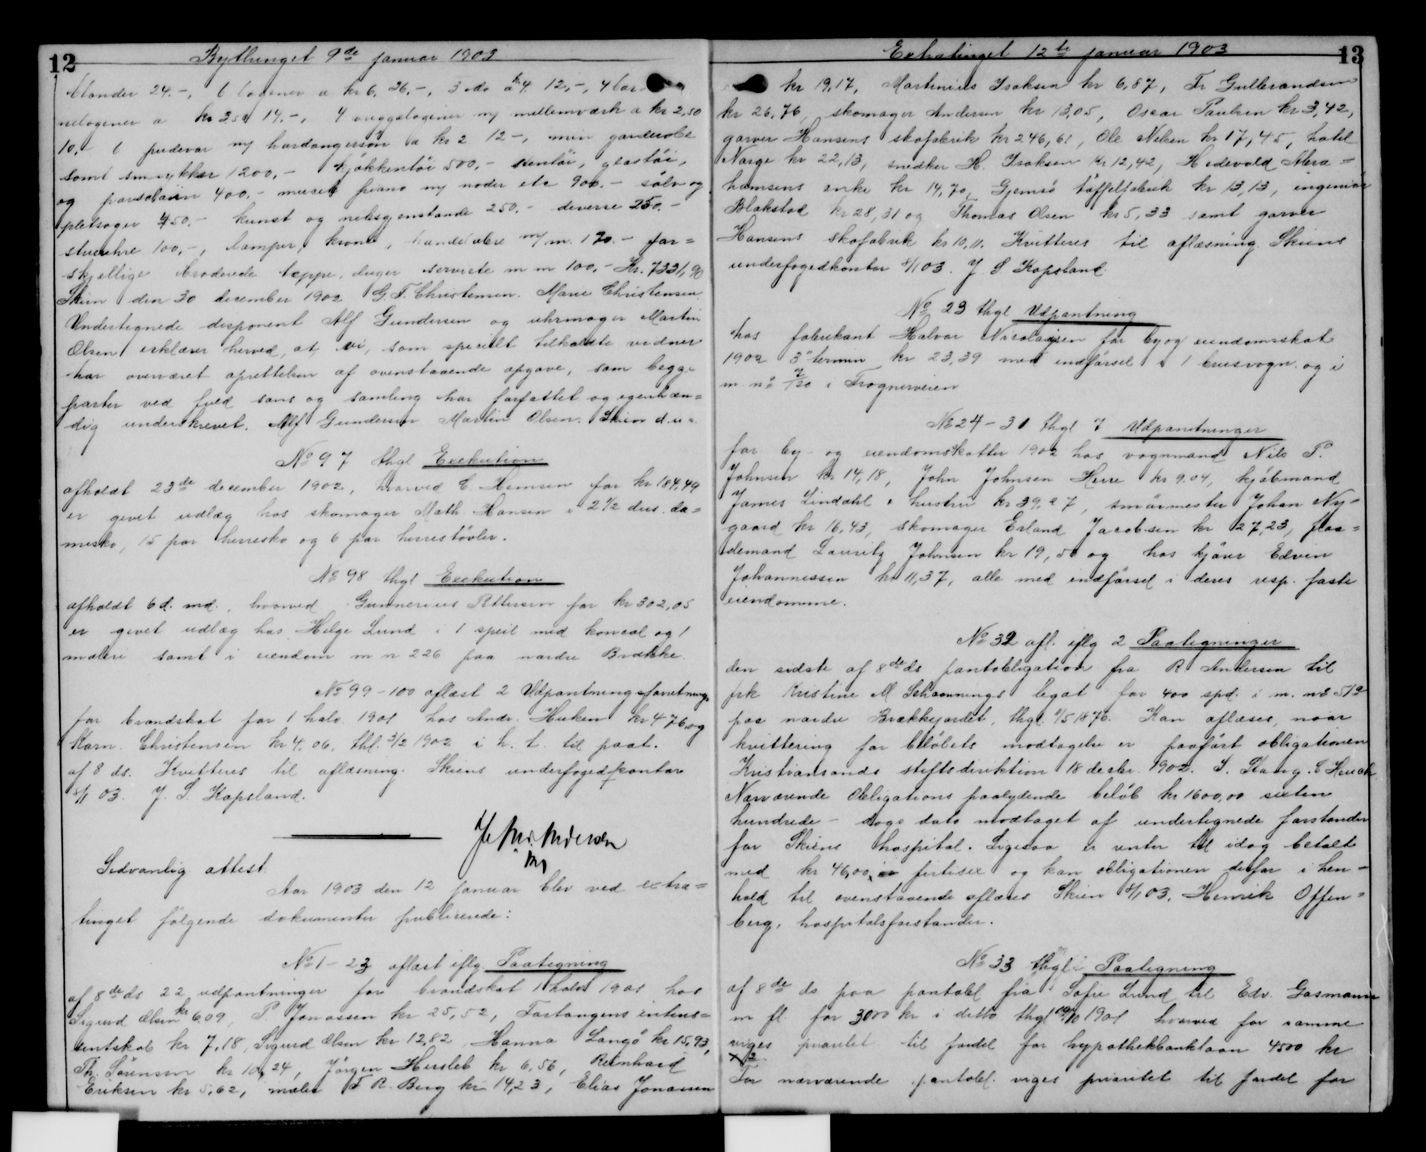 12
Bythinget 9de januar 1903
blonder 24.-, 6 a kr 6, 36,-, 3 do a 4 12,-, 4
a kr 14,-, 4 m/ mellemværk a kr 2,50
10,- 6 m/ hardangersøm a kr 2 12-, min garderobe
samt smykker 1200,- kjøkkentøi 500,- stentøi, glastøi,
og porselain 400,- musik piano m/ noder etc 900.- sølv og
pletsager 450.- kunst og 250.- diverse 250.-
100,-, lamper, krone, m/ m. 170.- for=
skjellige broderede tæppe, duger serviette m m 100,- Kr. 7331,90
Skien den 30 december 1902 G F. Christensen. Marie Christensen
Undertegnede disponent Alf Gundersen og uhrmager Martin
Olsen erklærer herved, at vi, som specielt tilkaldte vidner
har overværet oprettelsen af ovenstaaende opgave, som begge
parter ved fuld sans og samling har forfattet og egenhæn=
dig underskrevet. Alf Gundersen Martin Olsen. Skien d.u.s.
No 97 thgl Exekution
afholdt 23de december 1902, hvorved C. for kr 184,49
er givet udlæg hos skomager Math. Hansen i 2½ dus. da=
mesko, 15 par herresko og 6 par herrestøvler.
No 98 thgl Exekution
afholdt 6 d. md., hvorved Gunnerius Pettersen for kr 302,05
er givet udlæg hos Helge Lund i 1 speil med konsol og 1
maleri samt i eiendom m n 226 paa nordre Brække.
No 99-100 aflæst 2 Udpantningsforretninger
for brandskat for 1 halv. 1901 hos Andr. kr 4,76 og
Karn. Christensen kr 4,06, thl. 3/2 1902 i h. t. til paat.
af 8 ds. Kvitteres til aflæsning. Skiens underfogedkontor
8/1 03. J. S. Kopsland.
Sedvanlig attest
Aar 1903 den 12 januar blev ved extra=
tinget følgende dokumenter publicerede:
No 1-23 aflæst iflg Paategning
af 8de ds 22 udpantninger for brandskat 1 halv 1901 hos
Sigurd Olsen kr 6,09, P Jonassen kr 25,52, Fartangens interes=
sentskab kr 7,18, Sigurd Olsen kr 12,82 Hanna Langø kr 15,93,
Th. Sørensen kr 10,24, Jørgen Hersleb kr 6,56, Reinhard
Eriksen kr 5,62, maler F R Berg kr 14,23, Elias Jonassen
13
Extratinget 12te januar 1903
kr 19,17, Martinius Isaksen kr 6,57, Fr Gulbrandsen
kr 26,76, skomager Andersen kr 13,05, Oscar Paulsen kr 3,42,
garver Hansens skofabrik kr 246,61, Ole Nilsen kr 17,45, hotel
Norge kr 22,13, snedker H. Isaksen kr 12,42, Hedevold Abra=
hamsens enke kr 14,70, Gjemsø tøffelfabrik kr 13,13, ingeniør
Blakstad kr 28,31 og Thomas Olsen kr 5,33 samt garver
Hansens skofabrik kr 10,11. Kvitteres til aflæsning. Skiens
underfogedkontor 8/1 03. J S Kopsland
No 23 thgl Udpantning
hos fabrikant Halvor Nicolaisen for by og eiendomsskat
1902 3die termin kr 23,39 med indførsel i 1 brusvogn og i
m no 7/20 i Frognerveien
No 24-31 thgl 7 Udpantninger
for by- og eiendomsskatter 1902 hos vognmand Nils P.
Johnsen kr 14,18, John Johnsen Herre kr 9.04, kjøbmand
James Lindahl s hustru kr 39,27, smørmester Johan Ny=
gaard kr 16,43, skomager Erland Jacobsen kr 27,23, flaa=
demand Lauritz Johnsen kr 19,50 og hos kjører Edvin
Johannessen kr 11,37, alle med indførsel i deres resp. faste
eiendomme.
No 32 afl. iflg 2 Paategninger
den sidste af 8de ds pantobligation fra R Andersen til
frk Kristine M Schaannings legat for 400 spd. i m. no 512
paa nordre Brækkejordet, thgl 9/5 1876. Kan aflæses, naar
kvittering for beløbets modtagelse er paaført obligationen
Kristiansands stiftsdirektion 18 decbr. 1902.
Nærværende Obligations paalydende beløb kr 1600,00 sexten
hundrede - dags dato modtaget af undertegnede forstander
for Skiens hospital. Ligesaa er renter til idag betalt
med kr 46,00 firtisex og kan obligationen derfor i hen=
hold til ovenstaaende aflæses Skien 8/1 03. Henrik Offen=
berg, hospitalsforstander.
No 33 thgl Paategning
af 8de ds paa pantobl fra Sofie Lund til Edv. Gasmann
m fl for 3000 kr i ditto thgl 1901 hvorved for samme
viges prioritet til fordel for hypothekbanklaan 4500 kr
For nærværende pantobl. viges prioritet til fordel for